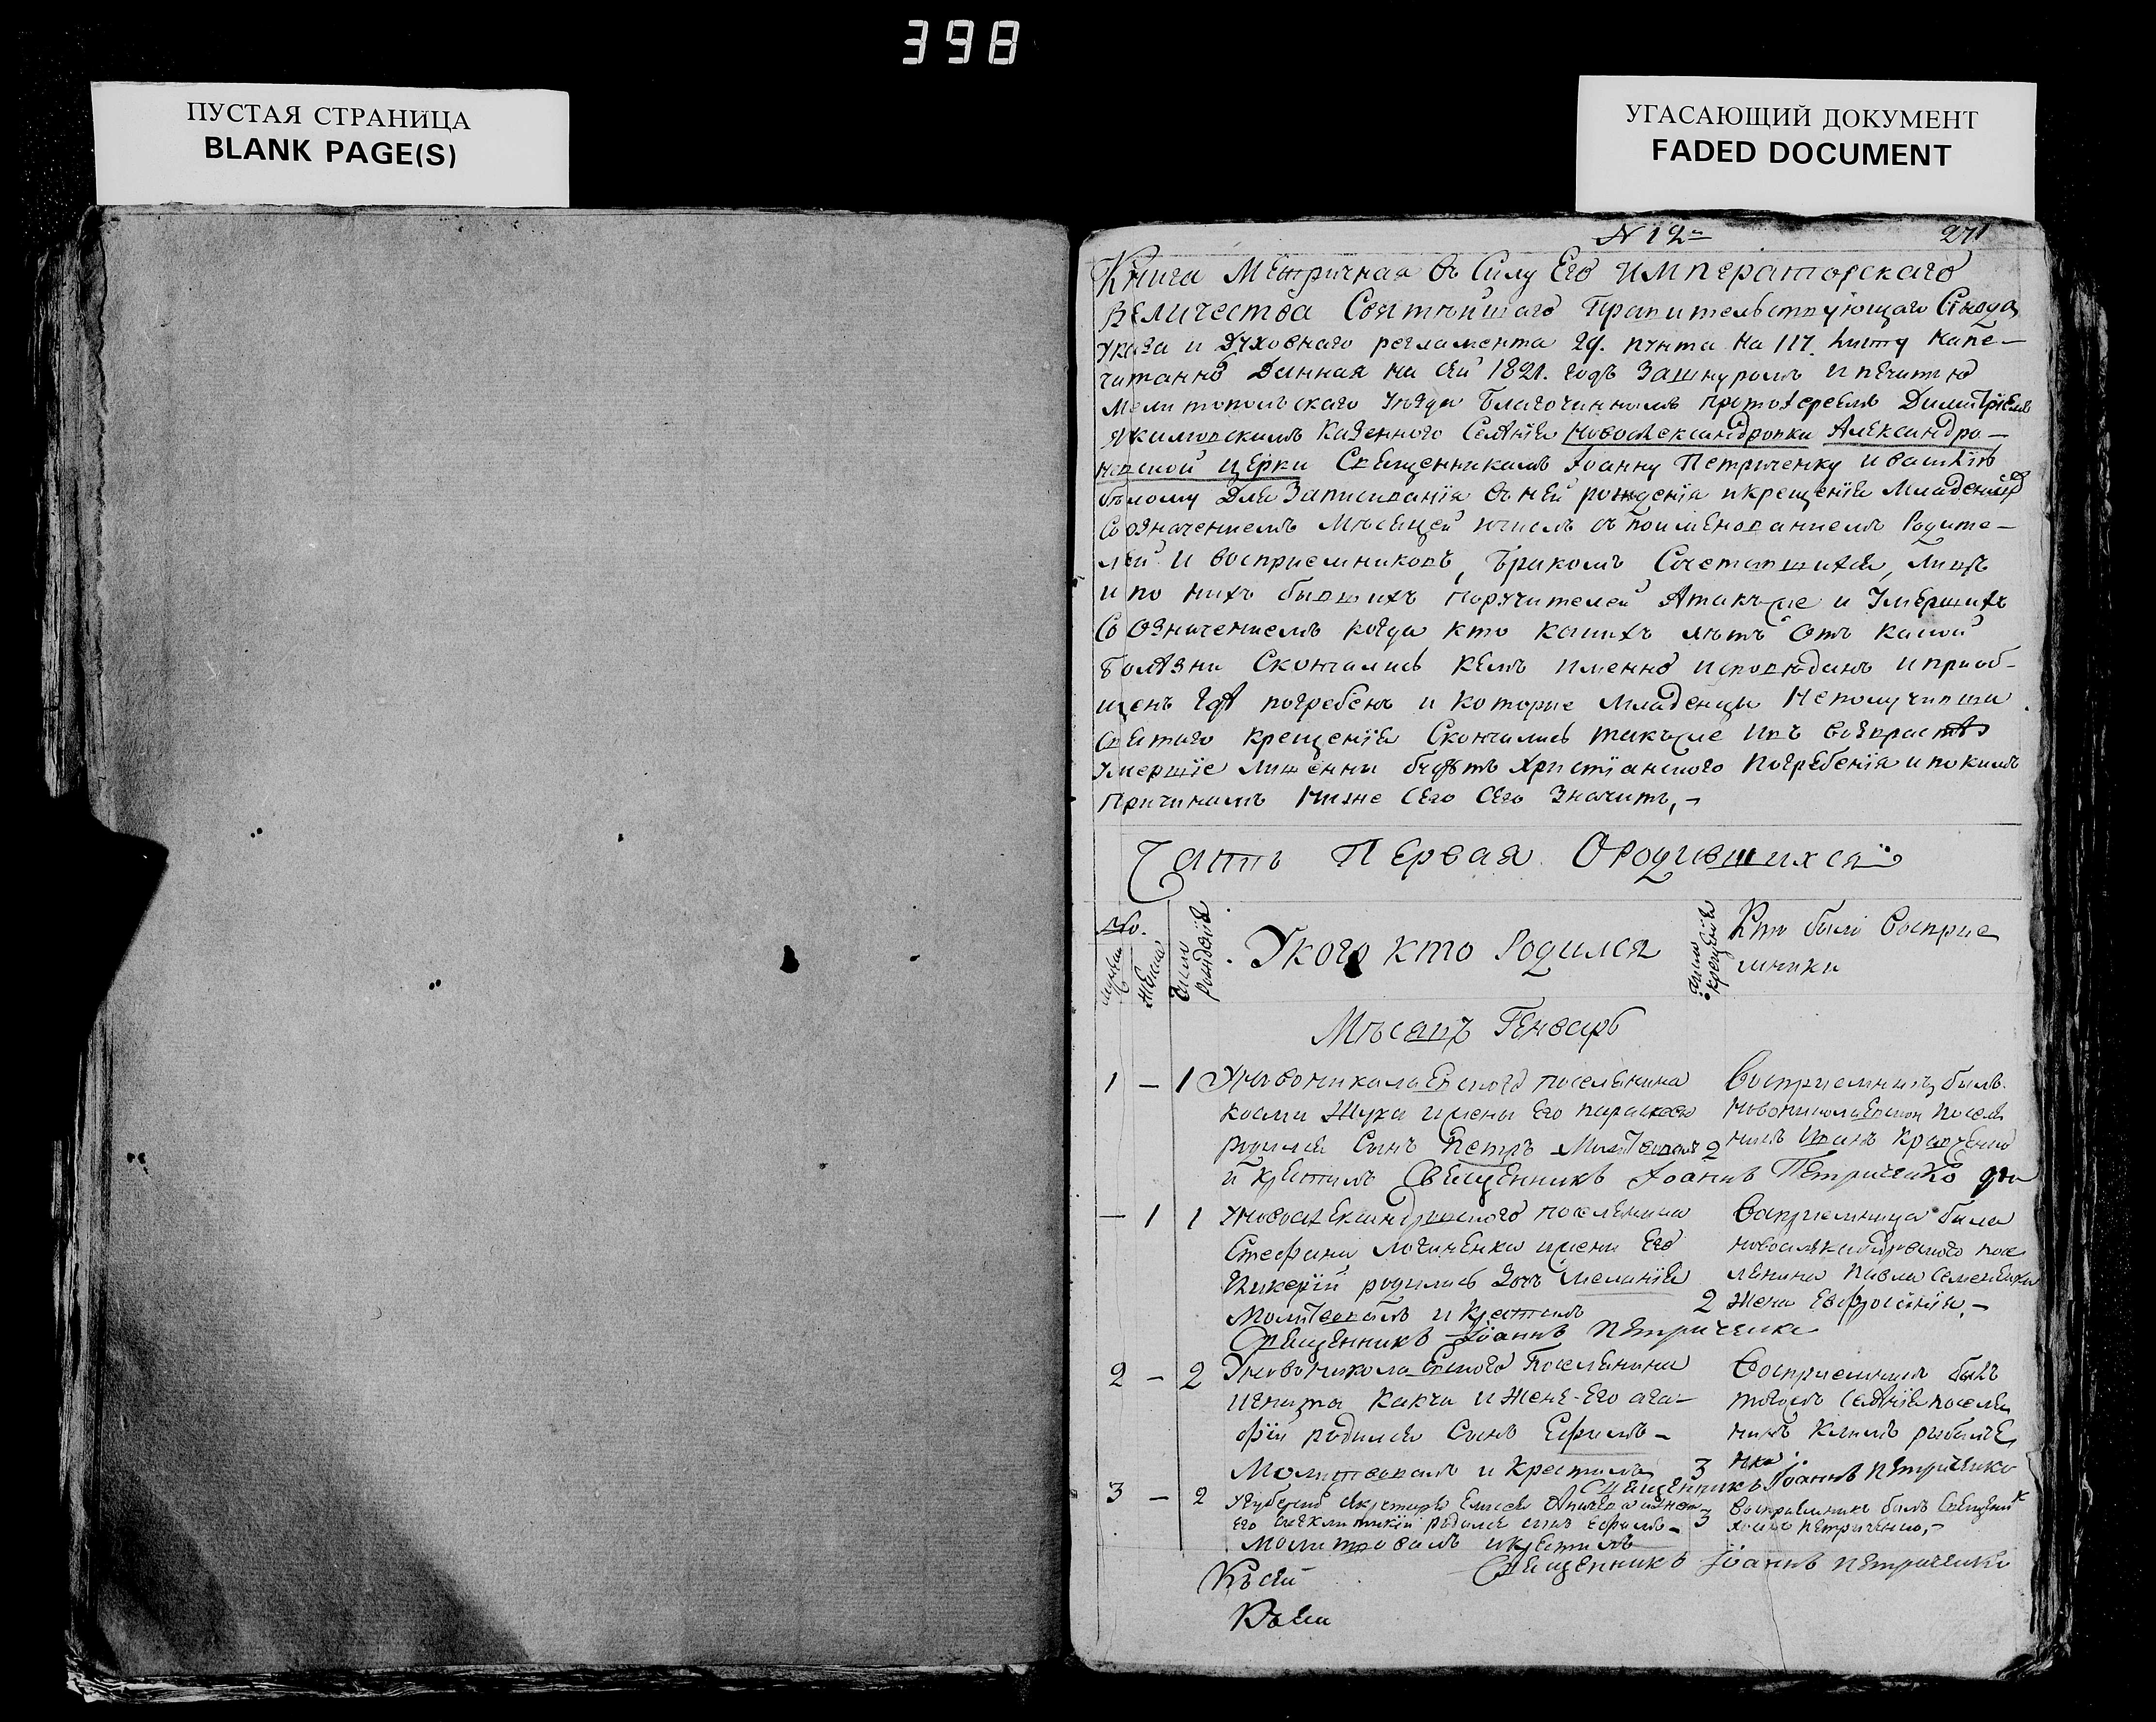 398
ПУСТАЯ СТРАНИЦА
BLANK PAGE(S)
УГАСАЮЩИЙ ДОКУМЕНТ
FADED DOCUMENT
N 12
271
Книга Метричная въ Силу Его Императорскаго
Величества Святѣйшаго Правительствующаго Сѵнода
Указа и Духовнаго регламента 29. пунта на 117. листу напе-
читанно Данная на сей 1821. годъ Зашнуромъ и печатью
Мелитопольскаго уѣзда Благочиннымъ протоіереемъ Димитріемъ
казенного Селенія Новоалександровки Александро-
невской церкви Священникамъ Іоанну Петриченку и
Бѣлому Для Записиванія въ ней рожденія и крещенія Младенцевъ
Со означениемъ Мѣсяцей и числъ съ поименованиемъ Родите-
лей и восприемниковъ, Бракомъ Сочетавшихся, лицъ
и по нихъ бывшихъ поручителей Атакъже и Умершихъ
Со означениемъ когда кто какихъ лѣтъ отъ какой
болѣзни Скончались кемъ именно исповѣданъ и приоб-
щенъ гдѣ погребенъ и которие Младенцы Неполучивши
святаго крещенія Скончались такъже и въ возрастѣ
умершіе лишенны будутъ Христіанского погребенія и по каким
причинамъ ниже сего Сего Значитъ,-
Часть Первая О родившихся
No.
мужеск
женск
Число рожденія
У кого кто Родился
число крещенія
Кто были Восприе
мники
Мѣсяцъ Генварь
1 - 1 У новониколаевского поселянина
Козми Жука и жени его параскеви
родился Сынъ Петръ Молитвовалъ 2
и крестилъ Священникъ Іоаннъ Петриченко
Восприемникъ былъ
новониколаевский поселя
нинъ Иванъ Кравченко
- 1 1 У новоалександровского поселянина
Стефана Логиненка и жени Его
Гликеріи родилась Дочь Меланія
Молитвовалъ и крестилъ 2
Священникъ Іоаннъ Петриченко
Восприемница была
новоалександровского посе
лянина Павла Семененка
жена Евфросинія.-
2 - 2 У новониколаевского Поселянина
Игната и жене Его ага-
фіи родился Сынъ Ефимъ-
Молитвовалъ и крестилъ 3
Священникъ Іоаннъ Петриченко
Восприемникъ былъ
тогожъ Селенія поселя
нинъ Климъ рыбалче
нко.
3 - 2 Елисея
его родился сынъ Ефимъ- 3
Молитвовалъ и крестилъ
Священникъ Іоаннъ Петриченко
Восприемникъ былъ Священник
Іоаннъ Петриченко,-
Къ сей
Къ сей